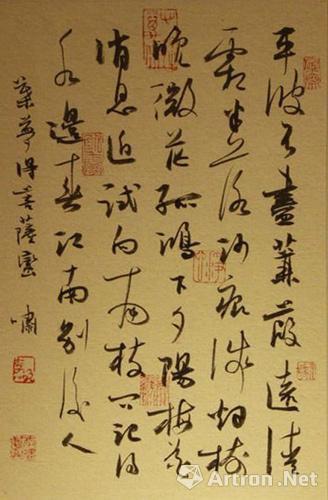 平波不盡蒹葭遠清
霜半落沙痕淺烟樹
晚微茫孤鴻下夕陽梅花
消息近試向南枝問記得
水邊春江南別後人
葉夢得菩薩蠻 嘯
Artron.Net